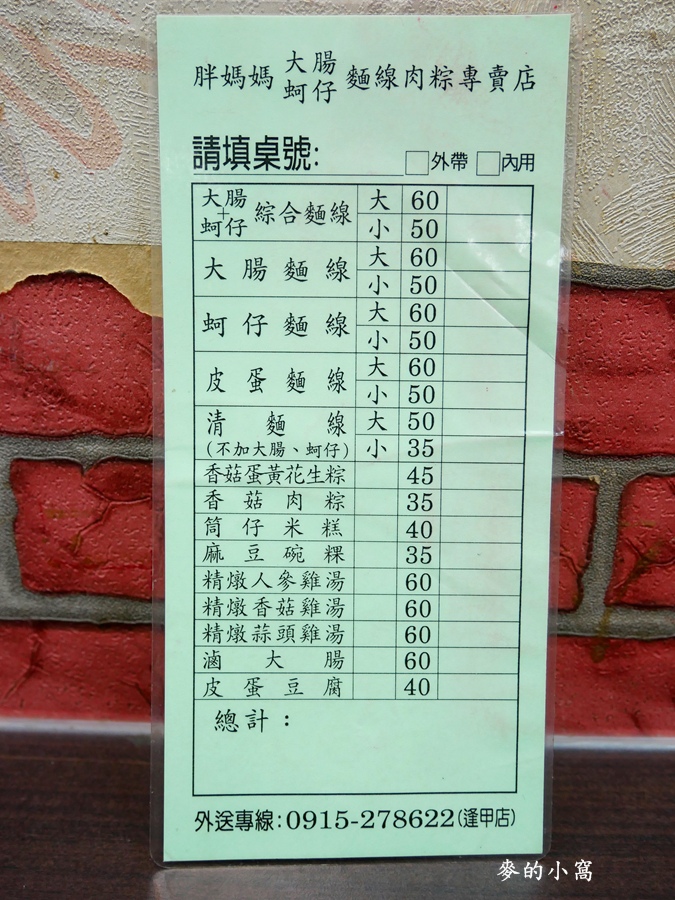 胖媽媽 大腸 蚵仔 麵線肉粽專賣店
請填桌號: □外帶 □內用
大腸+蚵仔 綜合麵線 大 60
小 50
大腸麵線 大 60
小 50
蚵仔麵線 大 60
小 50
皮蛋麵線 大 60
小 50
清麵線 大 50
(不加大腸、蚵仔) 小 35
香菇蛋黃花生粽 45
香菇肉粽 35
筒仔米糕 40
麻豆碗粿 35
精燉人參雞湯 60
精燉香菇雞湯 60
精燉蒜頭雞湯 60
滷大腸 60
皮蛋豆腐 40
總計:
外送專線:0915-278622(逢甲店)
麥的小窩